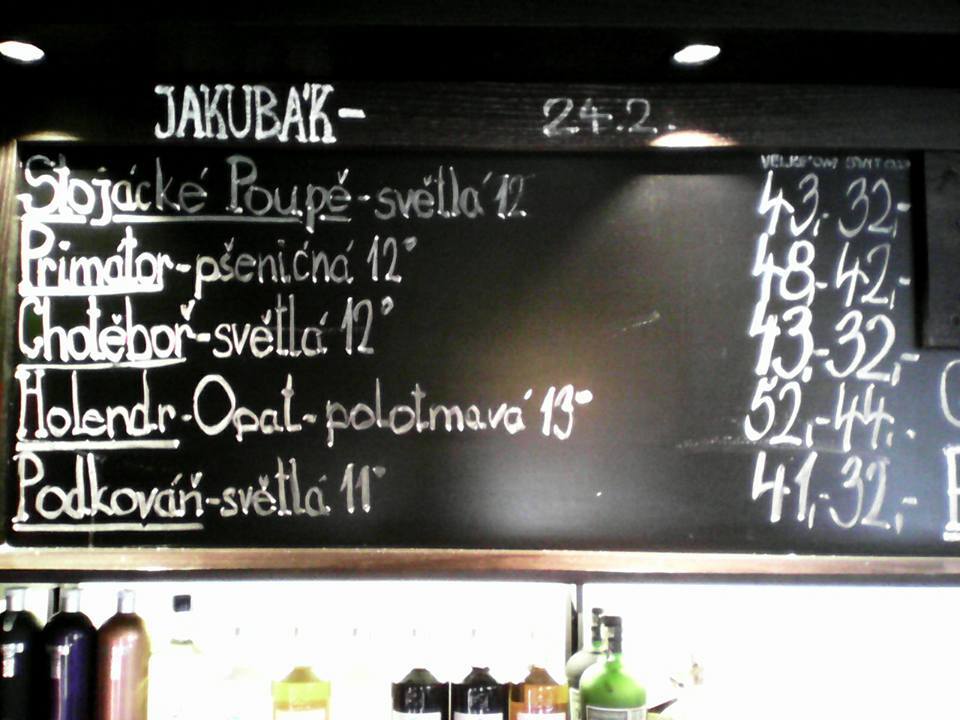 JAKUBÁK- 24.2.
Stojácké Poupě-světlá 12 43,- 32,-
Primátor-pšeničná 12° 48,- 42,-
Chotěboř-světlá 12° 43,- 32,-
Holendr-Opat-polotmavá 13° 52,- 44,-
Podkováň-světlá 11° 41,- 32,-